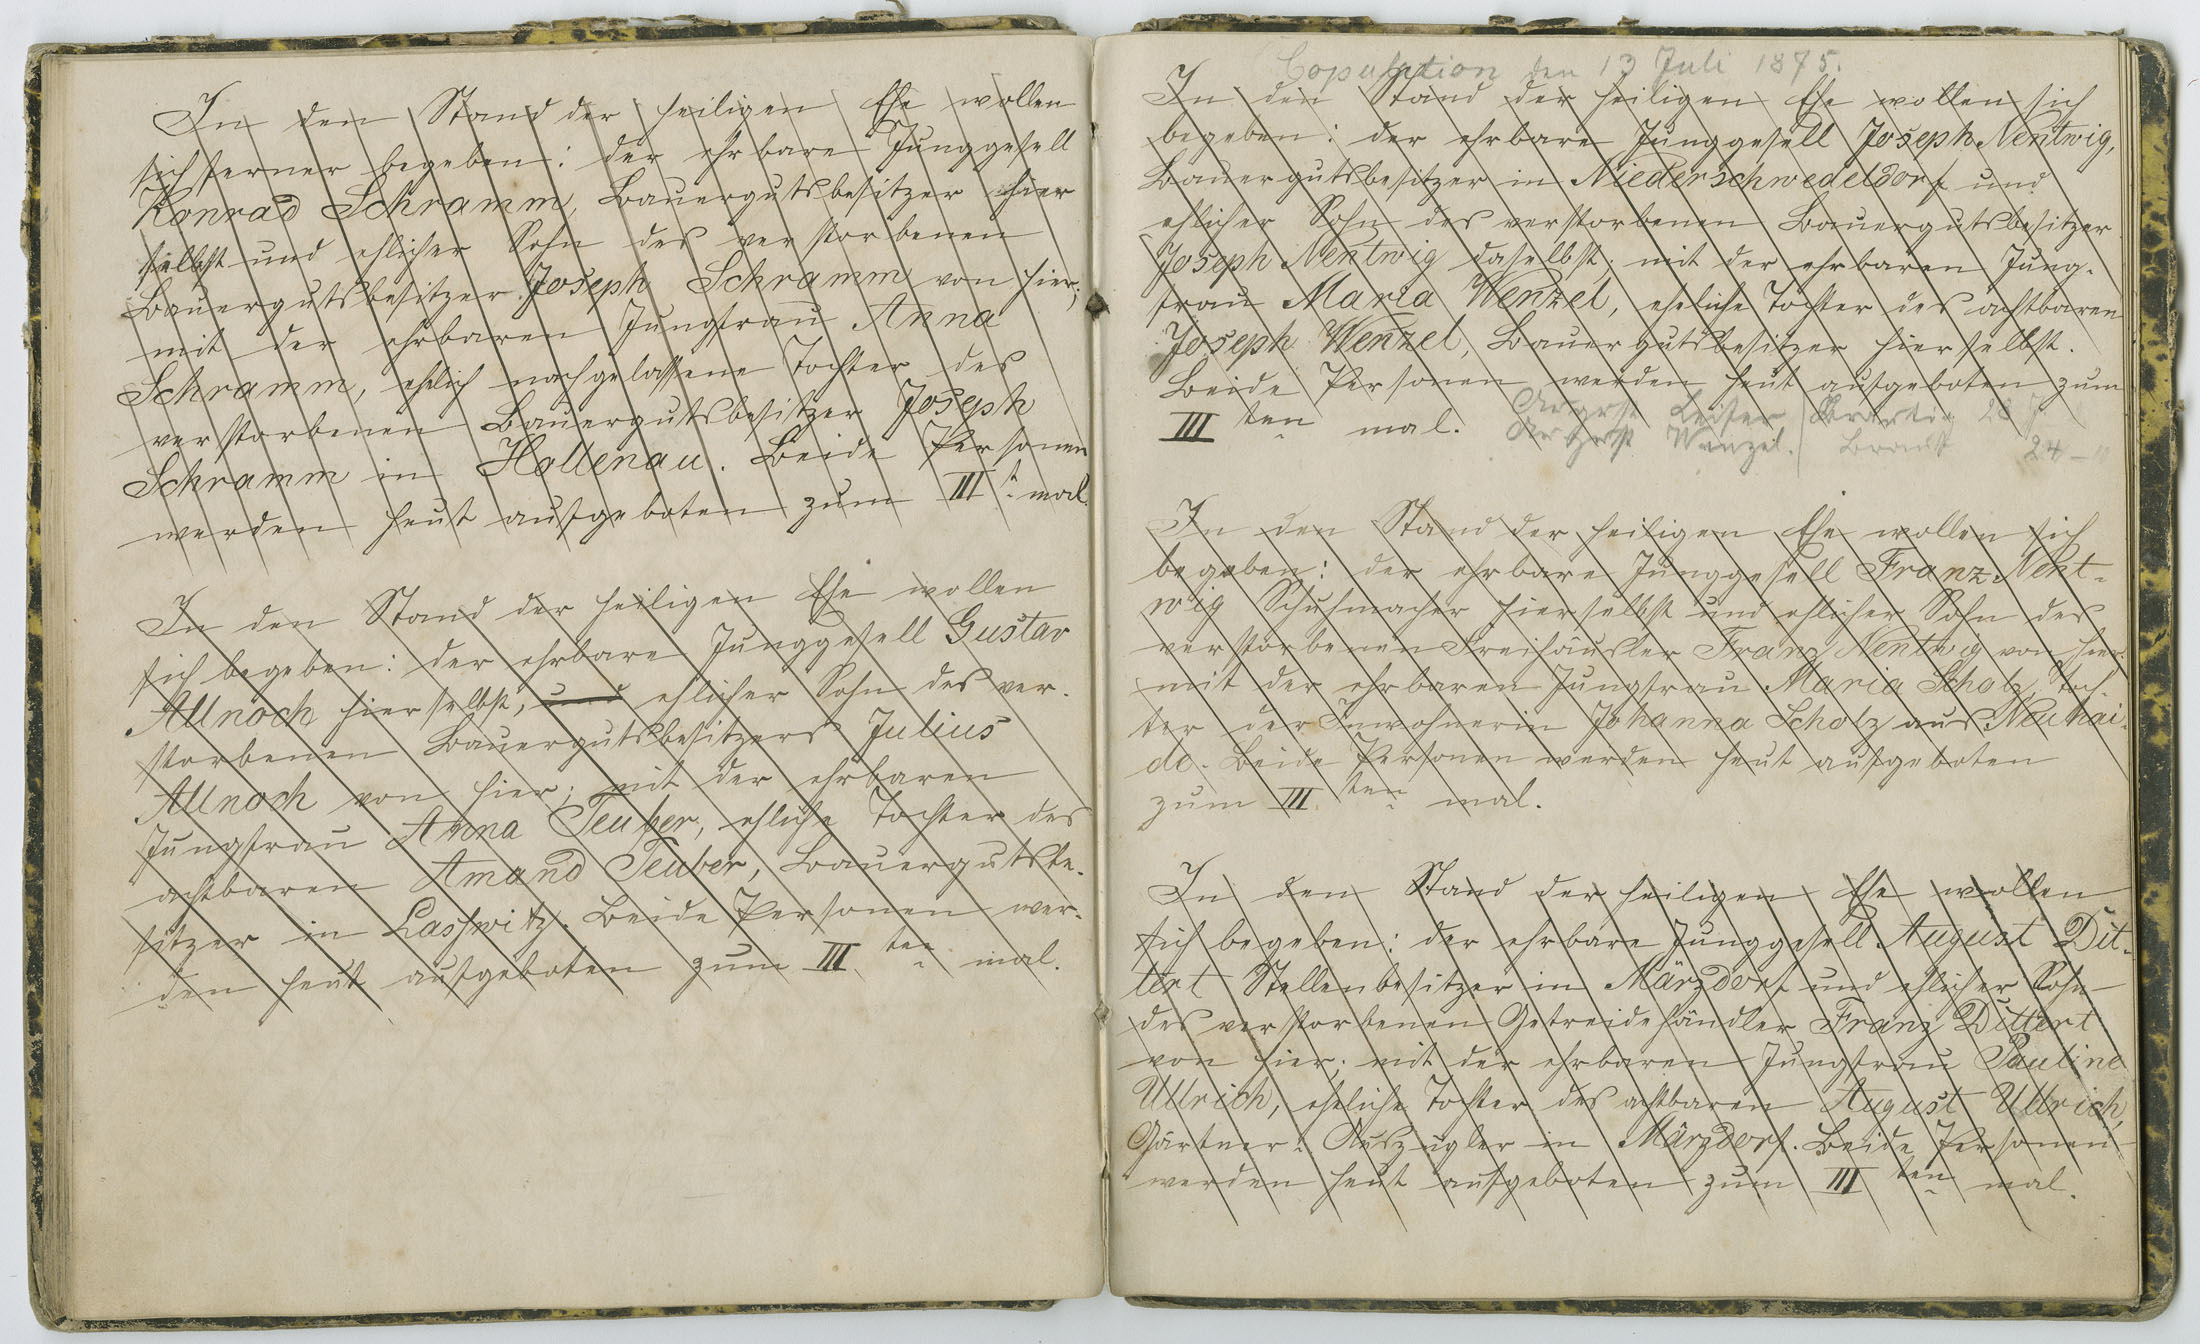 In den Stand der heiligen Ehe wollen
sich ferner begeben: der ehrbare Junggesell
Konrad Schramm, Bauergutsbesitzer hier
selbst und ehlicher Sohn des verstorbenen
Bauergutsbesitzer Joseph Schramm von hier;
mit der ehrbaren Jungfrau Anna
Schramm, ehlich nachgelassene Tochter des
verstorbenen Bauergutsbesitzer Joseph
Schramm in Hollenau. Beide Personen
werden heut aufgeboten zum III t. mal.
In den Stand der heiligen Ehe wollen
sich begeben: der ehrbare Junggesell Gustav
Allnoch hierselbst, und ehlicher Sohn des ver-
storbenen Bauergutsbesitzers Julius
Allnoch von hier; mit der ehrbaren
Jungfrau Anna Teuber, ehliche Tochter des
achtbaren Amand Teuber, Bauergutsbe-
sitzer in Lasswitz. Beide Personen wer-
den heut aufgeboten zum III ten mal.
Copulation den 13 Juli 1875.
In den Stand der heiligen Ehe wollen sich
begeben: der ehrbare Junggesell Joseph Nentwig,
Bauergutsbesitzer in Niederschwedeldorf und
ehlicher Sohn des verstorbenen Bauergutsbesitzer
Joseph Nentwig daselbst; mit der ehrbaren Jung-
frau Maria Wenzel, eheliche Tochter des achtbaren
Joseph Wenzel, Bauergutsbesitzer hierselbst.
Beide Personen werden heut aufgeboten zum
III ten mal.
August 28
August Wenzel. Braut 24
In den Stand der heiligen Ehe wollen sich
begeben: der ehrbare Junggesell Franz Nent-
wig Schuhmacher hierselbst und ehlicher Sohn des
verstorbenen Freihäusler Franz Nentwig von hier
mit der ehrbaren Jungfrau Maria Scholz, Toch-
ter der Inwohnerin Johanna Scholz aus Neuhai-
de. Beide Personen werden heut aufgeboten
zum III ten mal.
In den Stand der heiligen Ehe wollen
sich begeben: der ehrbare Junggesell August Dit-
tert Stellenbesitzer in Märzdorf und ehlicher Sohn
des verstorbenen Getreidehändler Franz Dittert
von hier; mit der ehrbaren Jungfrau Pauline
Ullrich, eheliche Tochter des achtbaren August Ullrich,
Gärtner: Auszügler in Märzdorf. Beide Personen
werden heut aufgeboten zum III ten mal.